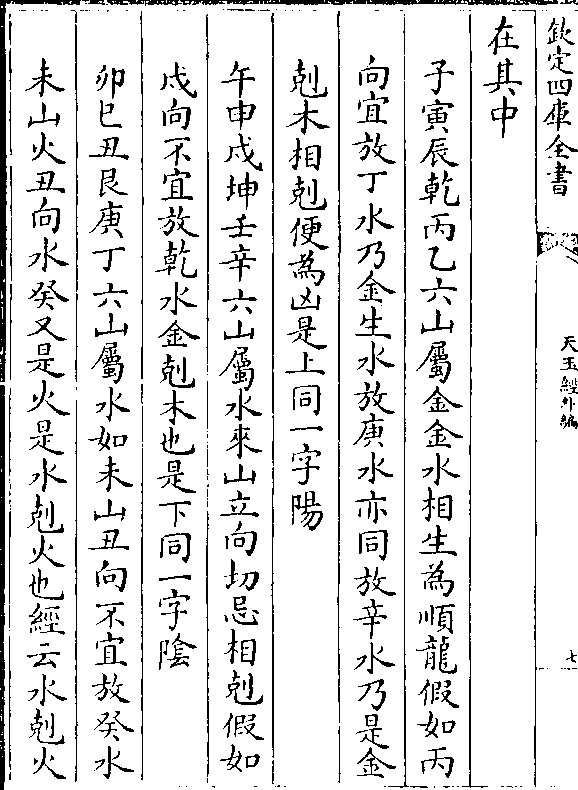 欽定四庫全書
天玉經外編
七
在其中
子寅辰乾丙乙六山屬金金水相生為順龍假如丙
向宜放丁水乃金生水放庚水亦同放辛水乃是金
剋木相剋便為凶是上同一字陽
午申戌坤壬辛六山屬水來山立向切忌相剋假如
戌向不宜放乾水金剋木也是下同一字隂
卯巳丑艮庚丁六山屬水如未山丑向不宜放癸水
未山火丑向水癸又是火是水剋火也經云水剋火